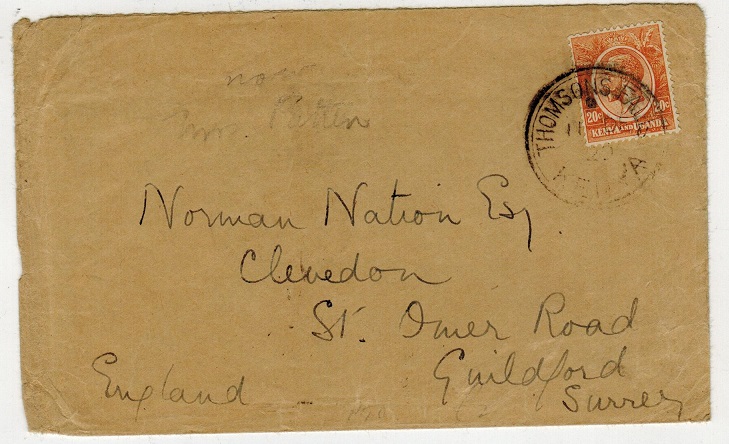 now
20c 20c
KENYA AND UGANDA
THOMSONS FALLS
KENYA
Norman Nation Esq
Clevedon
St. Omer Road
Guildford
Surrey
England